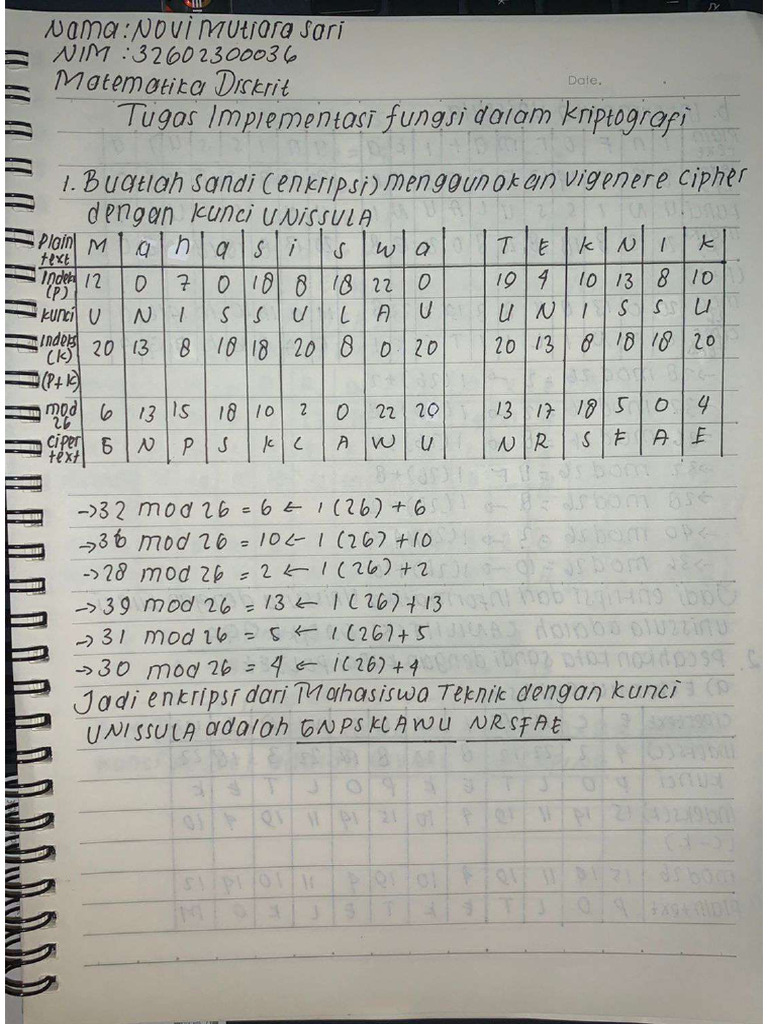 Nama : Novi Mutiara Sari
NIM : 32602300036
Matematika Diskrit
Date.
Tugas Implementasi fungsi dalam kriptografi
1. Buatlah sandi (enkripsi) menggunakan vigenere cipher
dengan kunci UNISSULA
Plain text M a h a s i s w a T E K N I K
Indek (P) 12 0 7 0 18 8 18 22 0 19 4 10 13 8 10
kunci U N I S S U L A U U N I S S U
Indeks (K) 20 13 8 18 18 20 8 0 20 20 13 8 18 18 20
(P+K)
mod 26 6 13 15 18 10 2 0 22 20 13 17 18 5 0 4
Ciper text G N P S K C A W U N R S F A E
→32 mod 26 = 6 ← 1 (26) + 6
→36 mod 26 = 10 ← 1 (26) + 10
→28 mod 26 = 2 ← 1 (26) + 2
→39 mod 26 = 13 ← 1 (26) + 13
→31 mod 26 = 5 ← 1 (26) + 5
→30 mod 26 = 4 ← 1 (26) + 4
Jadi enkripsi dari Mahasiswa Teknik dengan kunci
UNISSULA adalah GNPSKLAWU NRSFAE